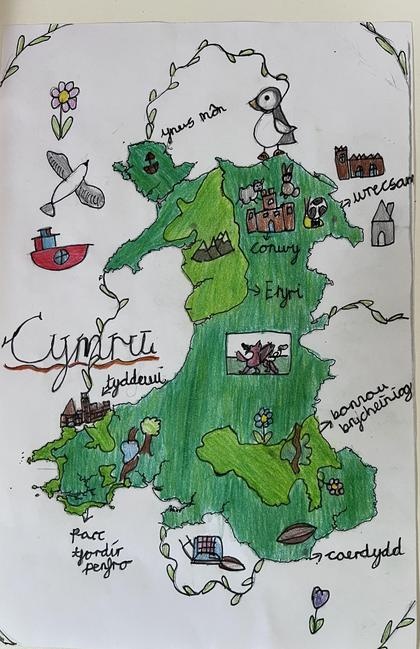 ynys môn
wrecsam
conwy
Eryri
Cymru
tyddewi
bannau
brycheiniog
parc
fordir
penfro
caerdydd